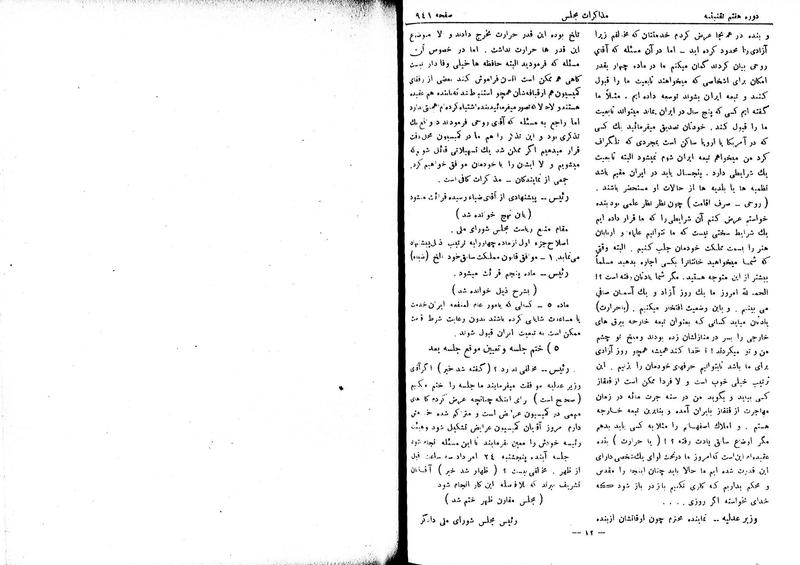 دوره هفتم تقنینیه
مذاکرات مجلس
صفحه ۹۴۱
و بنده در همه‌جا عرض کردم خدمتتان که مخالفم زیرا
آزادی را محدود کرده اید ـ اما در آن مسئله که آقای
روحی بیان کردند گمان میکنم ما در ماده چهار بقدر
امکان برای اشخاصی که میخواهند تابعیت ما را قبول
کنند و تبعه ایران بشوند توسعه داده ایم . مثلاً ما
گفته ایم کسی که پنج سال در ایران بماند میتواند تابعیت
ما را قبول کند . خودتان تصدیق میفرمائید یك کسی
که در آمریکا یا اروپا ساکن است بمجردی که تلگراف
کرد من میخواهم تبعه ایران شوم نمیشود البته تابعیت
یك شرایطی دارد . پنجسال باید در ایران مقیم باشد
نظمیه ها یا بلدیه ها از حالات او مستحضر باشند .
( روحی ـ صرف اقامت ) چون نظر نظر علمی بود بنده
خواستم عرض کنم آن شرایطی را که ما قرار داده ایم
یك شرایط سختی نیست که ما نتوانیم علماء و اربابان
هنر را بسمت مملکت خودمان جلب کنیم . البته وقتی
که شما میخواهید خانه‌تانرا بکسی اجاره بدهید مسلماً
بیشتر از این متوجه هستید . مگر شما یادتان رفته است ؟!
الحمد لله امروز ما یك روز آزاد و یك آسمان صافی
می بینیم . و باین وضعیت افتخار میکنیم . (با حرارت)
یادتان میاید کسانی که بعنوان تبعه خارجه بیرق های
خارجی را بسر در منازلشان زده بودند و میخ تو چشم
من و تو میکردند ! ؟ خدا کند همیشه همچو روز آزادی
برای ما باشد تا بتوانیم حرفهای خودمان را بزنیم . این
ترتیب خیلی خوب است و لا فردا ممکن است از قفقاز
کسی بیاید و بگوید من در سنه جرت مائه در زمان
مهاجرت از قفقاز بایران آمده و بنابرین تبعه خارجه
هستم . و املاك اصفهانم را مثلا به کسی باید بدهم
مگر اوضاع سابق یادت رفته ؟ ! ( با حرارت ) بنده
عقیده‌ام این است که امروز ما در تحت لوای یك شخصی دارای
این قدرت شده ایم ما حالا باید چنان اینجا را مقدس
و محکم بداریم که کاری نکنیم باز در باز شود که
خدای نخواسته اگر روزی . . . .
وزیر عدلیه ـ نماینده محترم چون اوقاتشان از بنده
تلخ بوده این قدر حرارت بخرج دادند و لا موضوع
این قدر ها حرارت نداشت . اما در خصوص آن
مسئله که فرمودید البته حافظه ها خیلی وفادار نیست
گاهی هم ممکن است انسان فراموش کند بعضی از رفقای
کمیسیون هم از قیافه‌شان همچو استنباط شد که با بنده هم عقیده
هستند و لا حالا که تصور میفرمائید بنده اشتباه کرده‌ام همینطور دارد
اما راجع به مسئله که آقای روحی فرمودند در واقع یك
تذکری بود و این تذکر را هم ما در کمیسیون محل دقت
قرار میدهیم اگر ممکن شد یك تسهیلاتی قائل شویم که
میشویم و لا ایشان را با خودمان موافق خواهیم کرد.
جمعی از نمایندگان ـ مذاکرات کافی است .
رئیس ـ پیشنهادی از آقای ضیاء رسیده قرائت میشود
( باین نهج خوانده شد )
مقام منیع ریاست مجلس شورای ملی .
اصلاح جزء اول از ماده چهار را به ترتیب ذیل پیشنهاد
می‌نماید. ۱ ـ موافق قانون مملکت سابق خود بالغ (ضیاء)
رئیس ـ ماده پنجم قرائت میشود .
( بشرح ذیل خوانده شد )
ماده ۵ ـ کسانی که بامور عام المنفعه ایران خدمت
یا مساعدت شایانی کرده باشند بدون رعایت شرط اقامت
ممکن است به تبعیت ایران قبول شوند .
۵ ) ختم جلسه و تعیین موقع جلسه بعد
رئیس ـ مخالفی ندارد ؟ ( گفته شد خیر ) اگر آقای
وزیر عدلیه موافقت میفرمایند ما جلسه را ختم میکنیم
( صحیح است ) برای اینکه چنانچه عرض کردم کارهای
مهمی در کمیسیون عرایض است و متراکم شده خواهش
دارم امروز آقایان کمیسیون عرایض تشکیل شود و هیئت
رئیسه خودش را معین بفرمایند تا این مسئله انجام شود
جلسه آینده پنجشنبه ۲۴ امرداد سه ساعت قبل
از ظهر . مخالفی نیست ؟ ( اظهار شد خیر ) آقایان
تشریف ببرند که بلافاصله این کار انجام شود
( مجلس مقارن ظهر ختم شد )
رئیس مجلس شورای ملی دادگر
ـ ۱۲ ـ